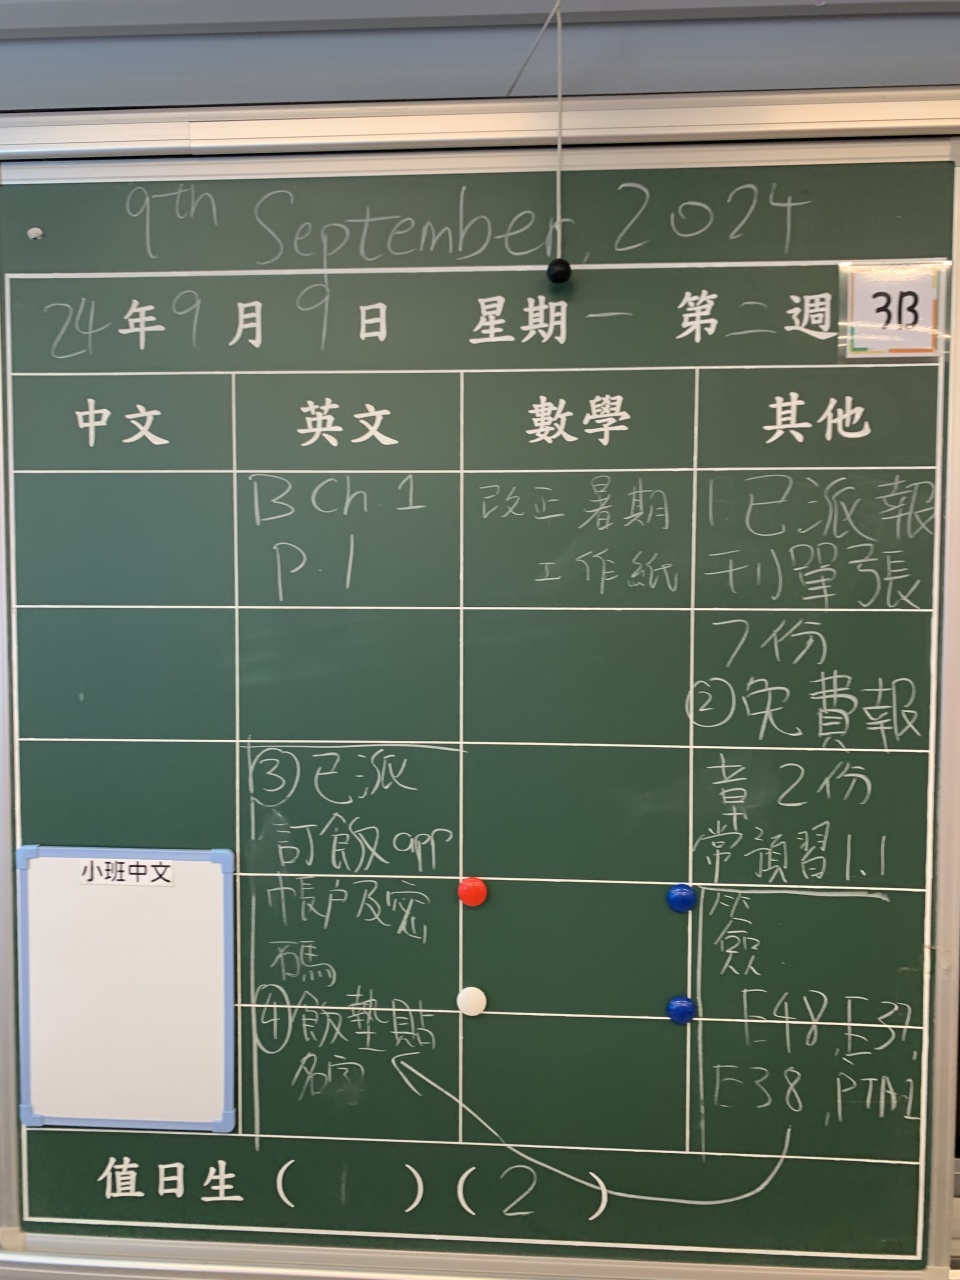 9th September, 2024
24年9月9日 星期一 第二週 3B
中文 英文 數學 其他
B Ch. 1
P. 1
改正暑期
工作紙
1 已派報
刊單張
7份
②免費報
章 2份
常預習 1.1
③已派
訂飯 app
帳戶及密
碼
④飯墊貼
名字
E48, E37,
E38, PTA1
小班中文
值日生 ( 1 ) ( 2 )